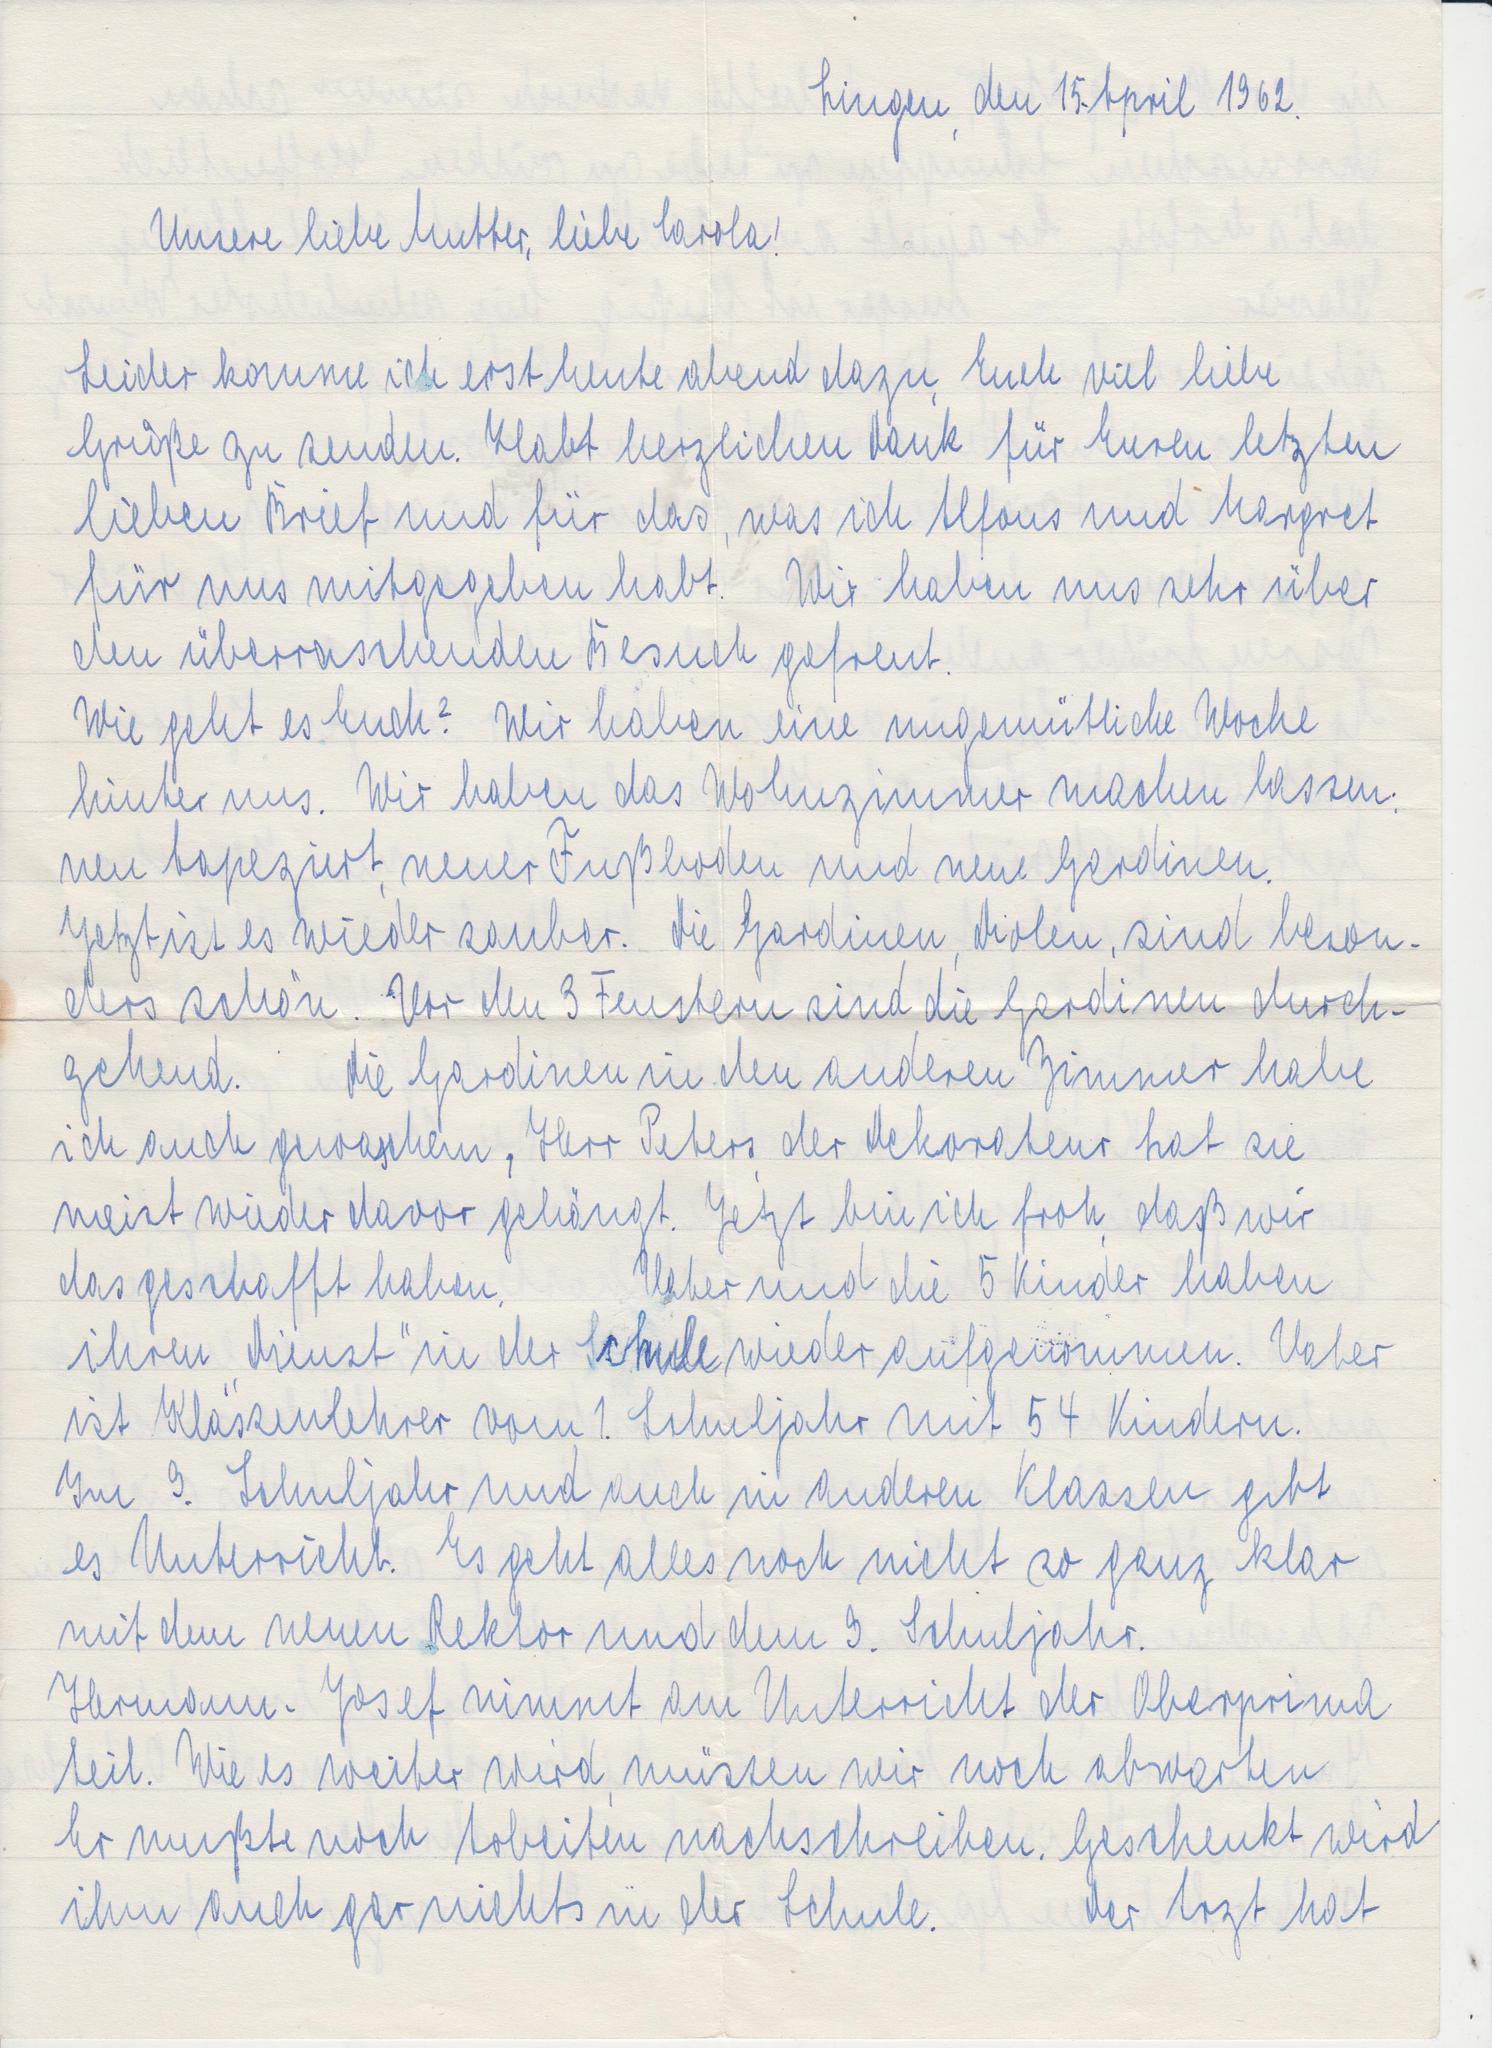 Lingen, den 15. April 1962.
Unsere liebe Mutter, liebe Carola!
Leider komme ich erst heute abend dazu, Euch viel liebe
Grüße zu senden. Habt herzlichen Dank für Euren letzten
lieben Brief und für das, was ich Alfons und Margret
für uns mitgegeben habt. Wir haben uns sehr über
den überraschenden Besuch gefreut.
Wie geht es Euch? Wir haben eine ungemütliche Woche
hinter uns. Wir haben das Wohnzimmer machen lassen:
neu tapeziert, neuer Fußboden und neue Gardinen.
Jetzt ist es wieder sauber. Die Gardinen, Diolen, sind beson-
ders schön. Vor den 3 Fenstern sind die Gardinen durch-
gehend. Die Gardinen in den anderen Zimmer habe
ich auch gewaschen, Herr Peters, der Dekorateur hat sie
meist wieder davor gehängt. Jetzt bin ich froh, daß wir
das geschafft haben. Vater und die 5 Kinder haben
ihren „Dienst" in der Schule wieder aufgenommen. Vater
ist Klassenlehrer vom 1. Schuljahr mit 54 Kindern.
Im 9. Schuljahr und auch in anderen Klassen gibt
es Unterricht. Es geht alles noch nicht so ganz klar
mit dem neuen Rektor und dem 9. Schuljahr.
Hermann-Josef nimmt am Unterricht der Oberprima
teil. Wie es weiter wird, müssen wir noch abwarten
Er mußte noch Arbeiten nachschreiben. Geschenkt wird
ihm auch gar nichts in der Schule. Der Arzt hat